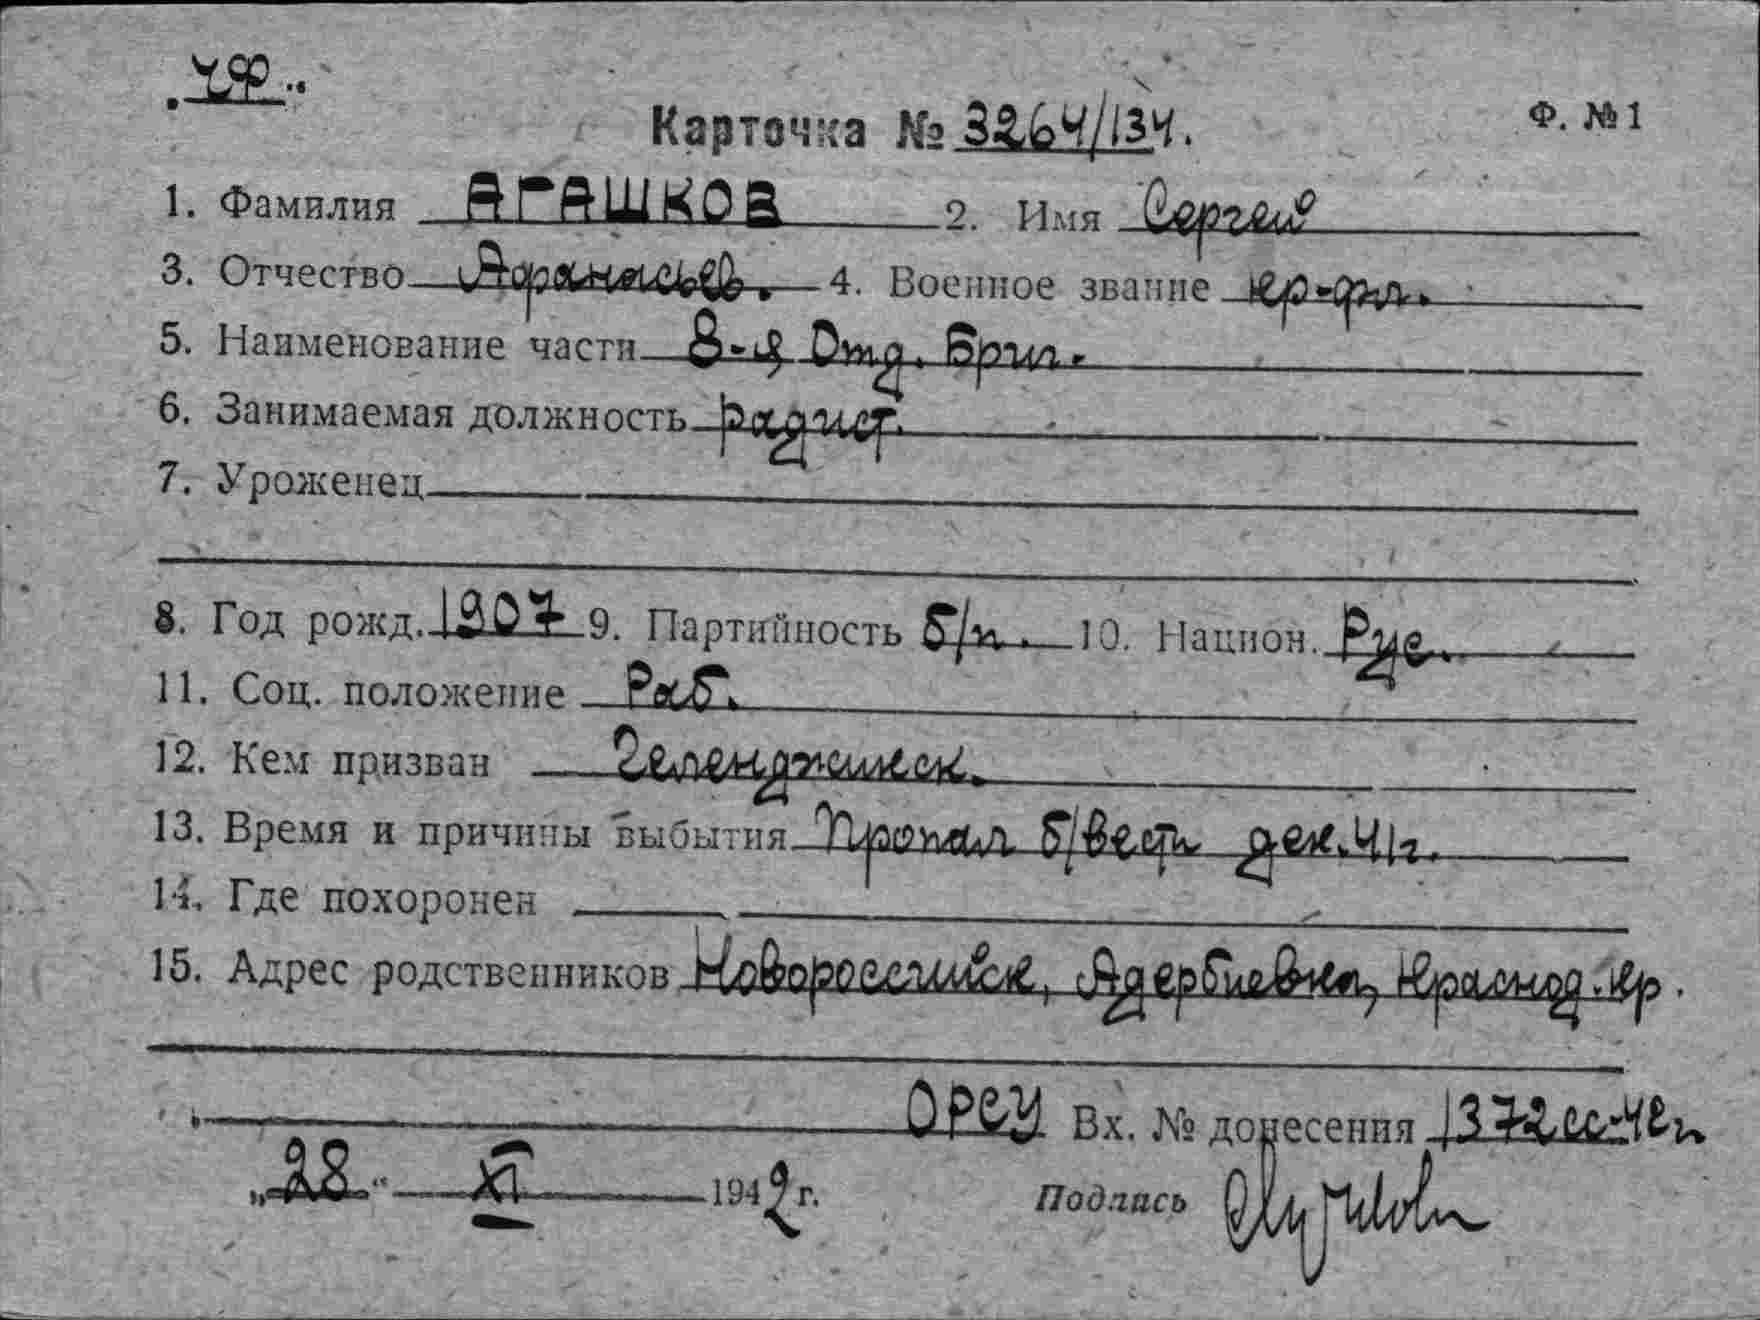 „ЧФ“
Карточка № 3264/134. Ф. №1
1. Фамилия АГАШКОВ 2. Имя Сергей
3. Отчество Афанасьев. 4. Военное звание кр-фл.
5. Наименование части 8-я Отд. Бриг.
6. Занимаемая должность радист.
7. Уроженец
8. Год рожд. 1907 9. Партийность б/п. 10. Национ. Рус.
11. Соц. положение Раб.
12. Кем призван Геленджикск.
13. Время и причины выбытия Пропал б/вести дек. 41г.
14. Где похоронен
15. Адрес родственников Новороссийск, Адербиевка, Краснод. кр.
ОРСУ Вх. № донесения 1372сс-42г
„28“ XI 1942 г. Подпись